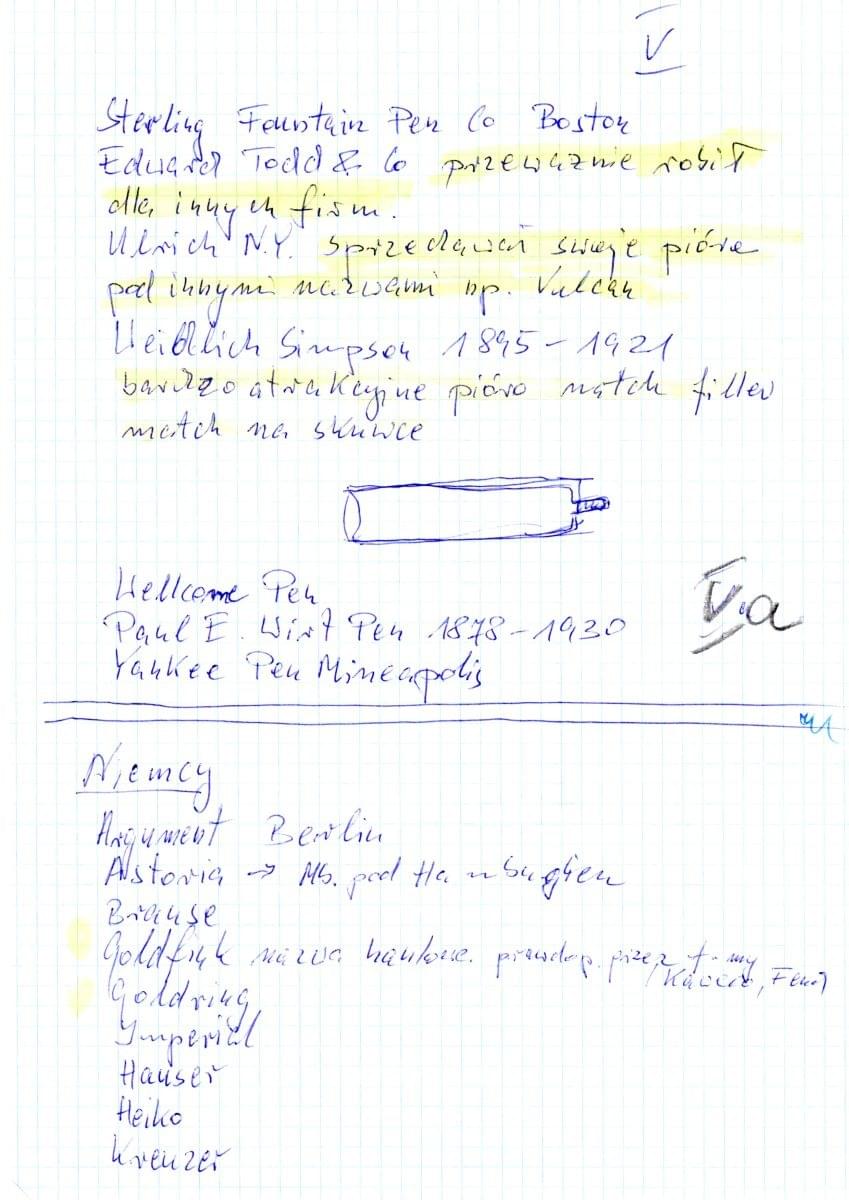 V
Sterling Fountain Pen Co Boston
Edward Todd & Co przeważnie robił
dla innych firm.
Ulrich N.Y. sprzedawał swoje pióra
pod innymi nazwami np. Vulcan
Weidlich Simpson 1895-1921
bardzo atrakcyjne pióro match filler
match na skuwce
Wellcome Pen
Paul E. Wirt Pen 1878-1930
V.a
Yankee Pen Mineapolis
Niemcy
Argument Berlin
Astoria → Mb. pod Hamburgiem
Brause
Goldfink nazwa handlow. prawdop. przez f-my
(Kaweco, Fend)
Goldring
Imperial
Hauser
Heiko
Kreuzer